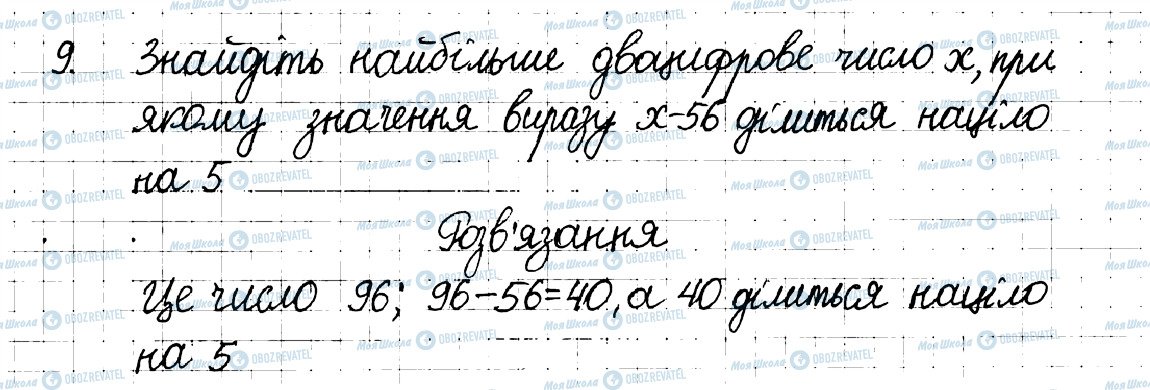 9. Знайдіть найбільше двацифрове число x, при
якому значення виразу x-56 ділиться націло
на 5
Розв'язання
Це число 96; 96-56=40, а 40 ділиться націло
на 5